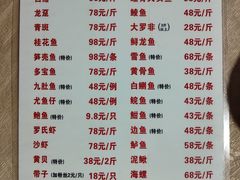 龙趸 78元/斤
青斑 78元/斤
桂花鱼 98元/斤
笋壳鱼(特价) 98元/条
多宝鱼 58元/斤
九肚鱼(特价) 48元/例
尤鱼仔(特价) 48元/例
鲍鱼(特价) 9.8元/只
罗氏虾 78元/斤
沙虾 78元/斤
黄贝(特价) 38元/2斤
带子(加粉丝2元/只) 18元/只
鳗鱼 48元/斤
大罗非 48元/斤
鲜龙鱼 48元/斤
雪鱼(特价) 68元/条
黄骨鱼 38元/斤
白鲳鱼(特价) 48元/条
鲩鱼(特价) 38元/条
鲳鱼(特价) 48元/条
边鱼(特价) 48元/条
鲈鱼 58元/条
泥鳅 38元/斤
海螺 68元/斤